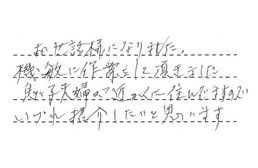 お世話様になりました。
機敏に作業して頂きました
息子夫婦が近くに住んでますので
いづれ紹介したいと思います